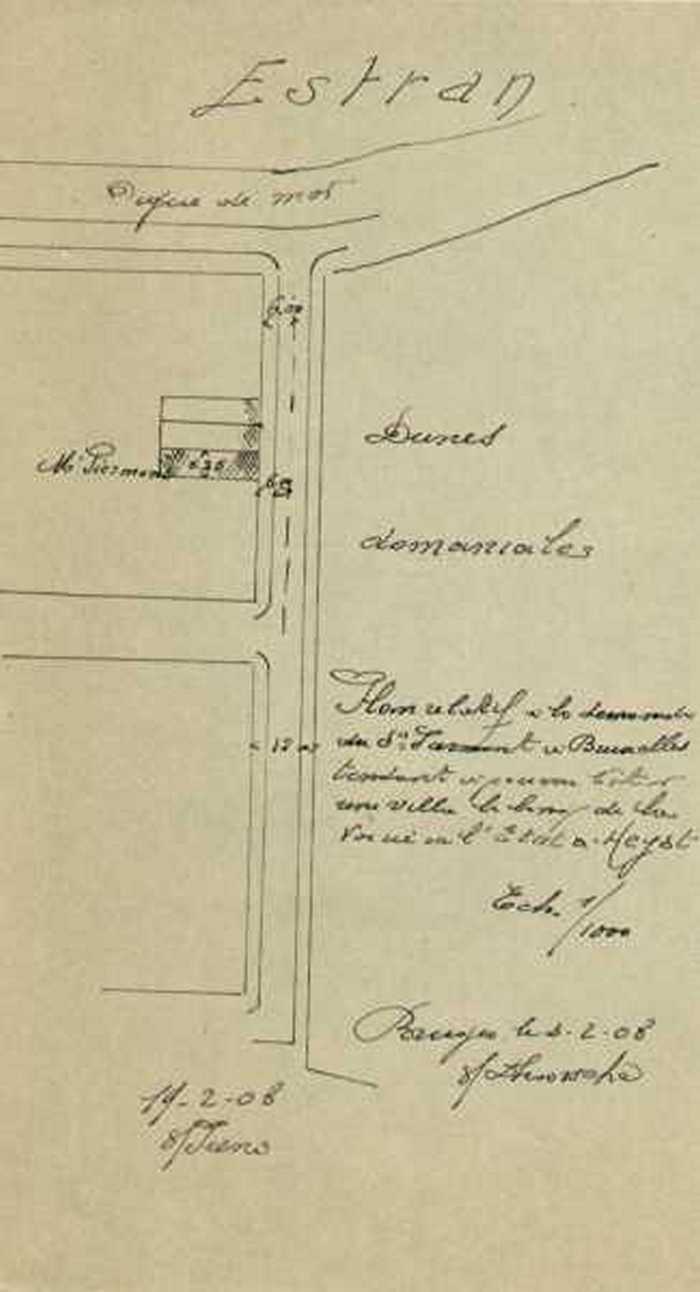 Estran
Digue de mer
6.00
Dunes
Mr Piermont
6.30
6.00
domaniales
Plan relatif à la demande
du Sr à Bruxelles
tendant à pouvoir bâtir
une villa le long de la
voirie de l'Etat à Heyst
12 m
Ech. 1/1000
Bruges le 8-2-08
s/
19-2-08
s/